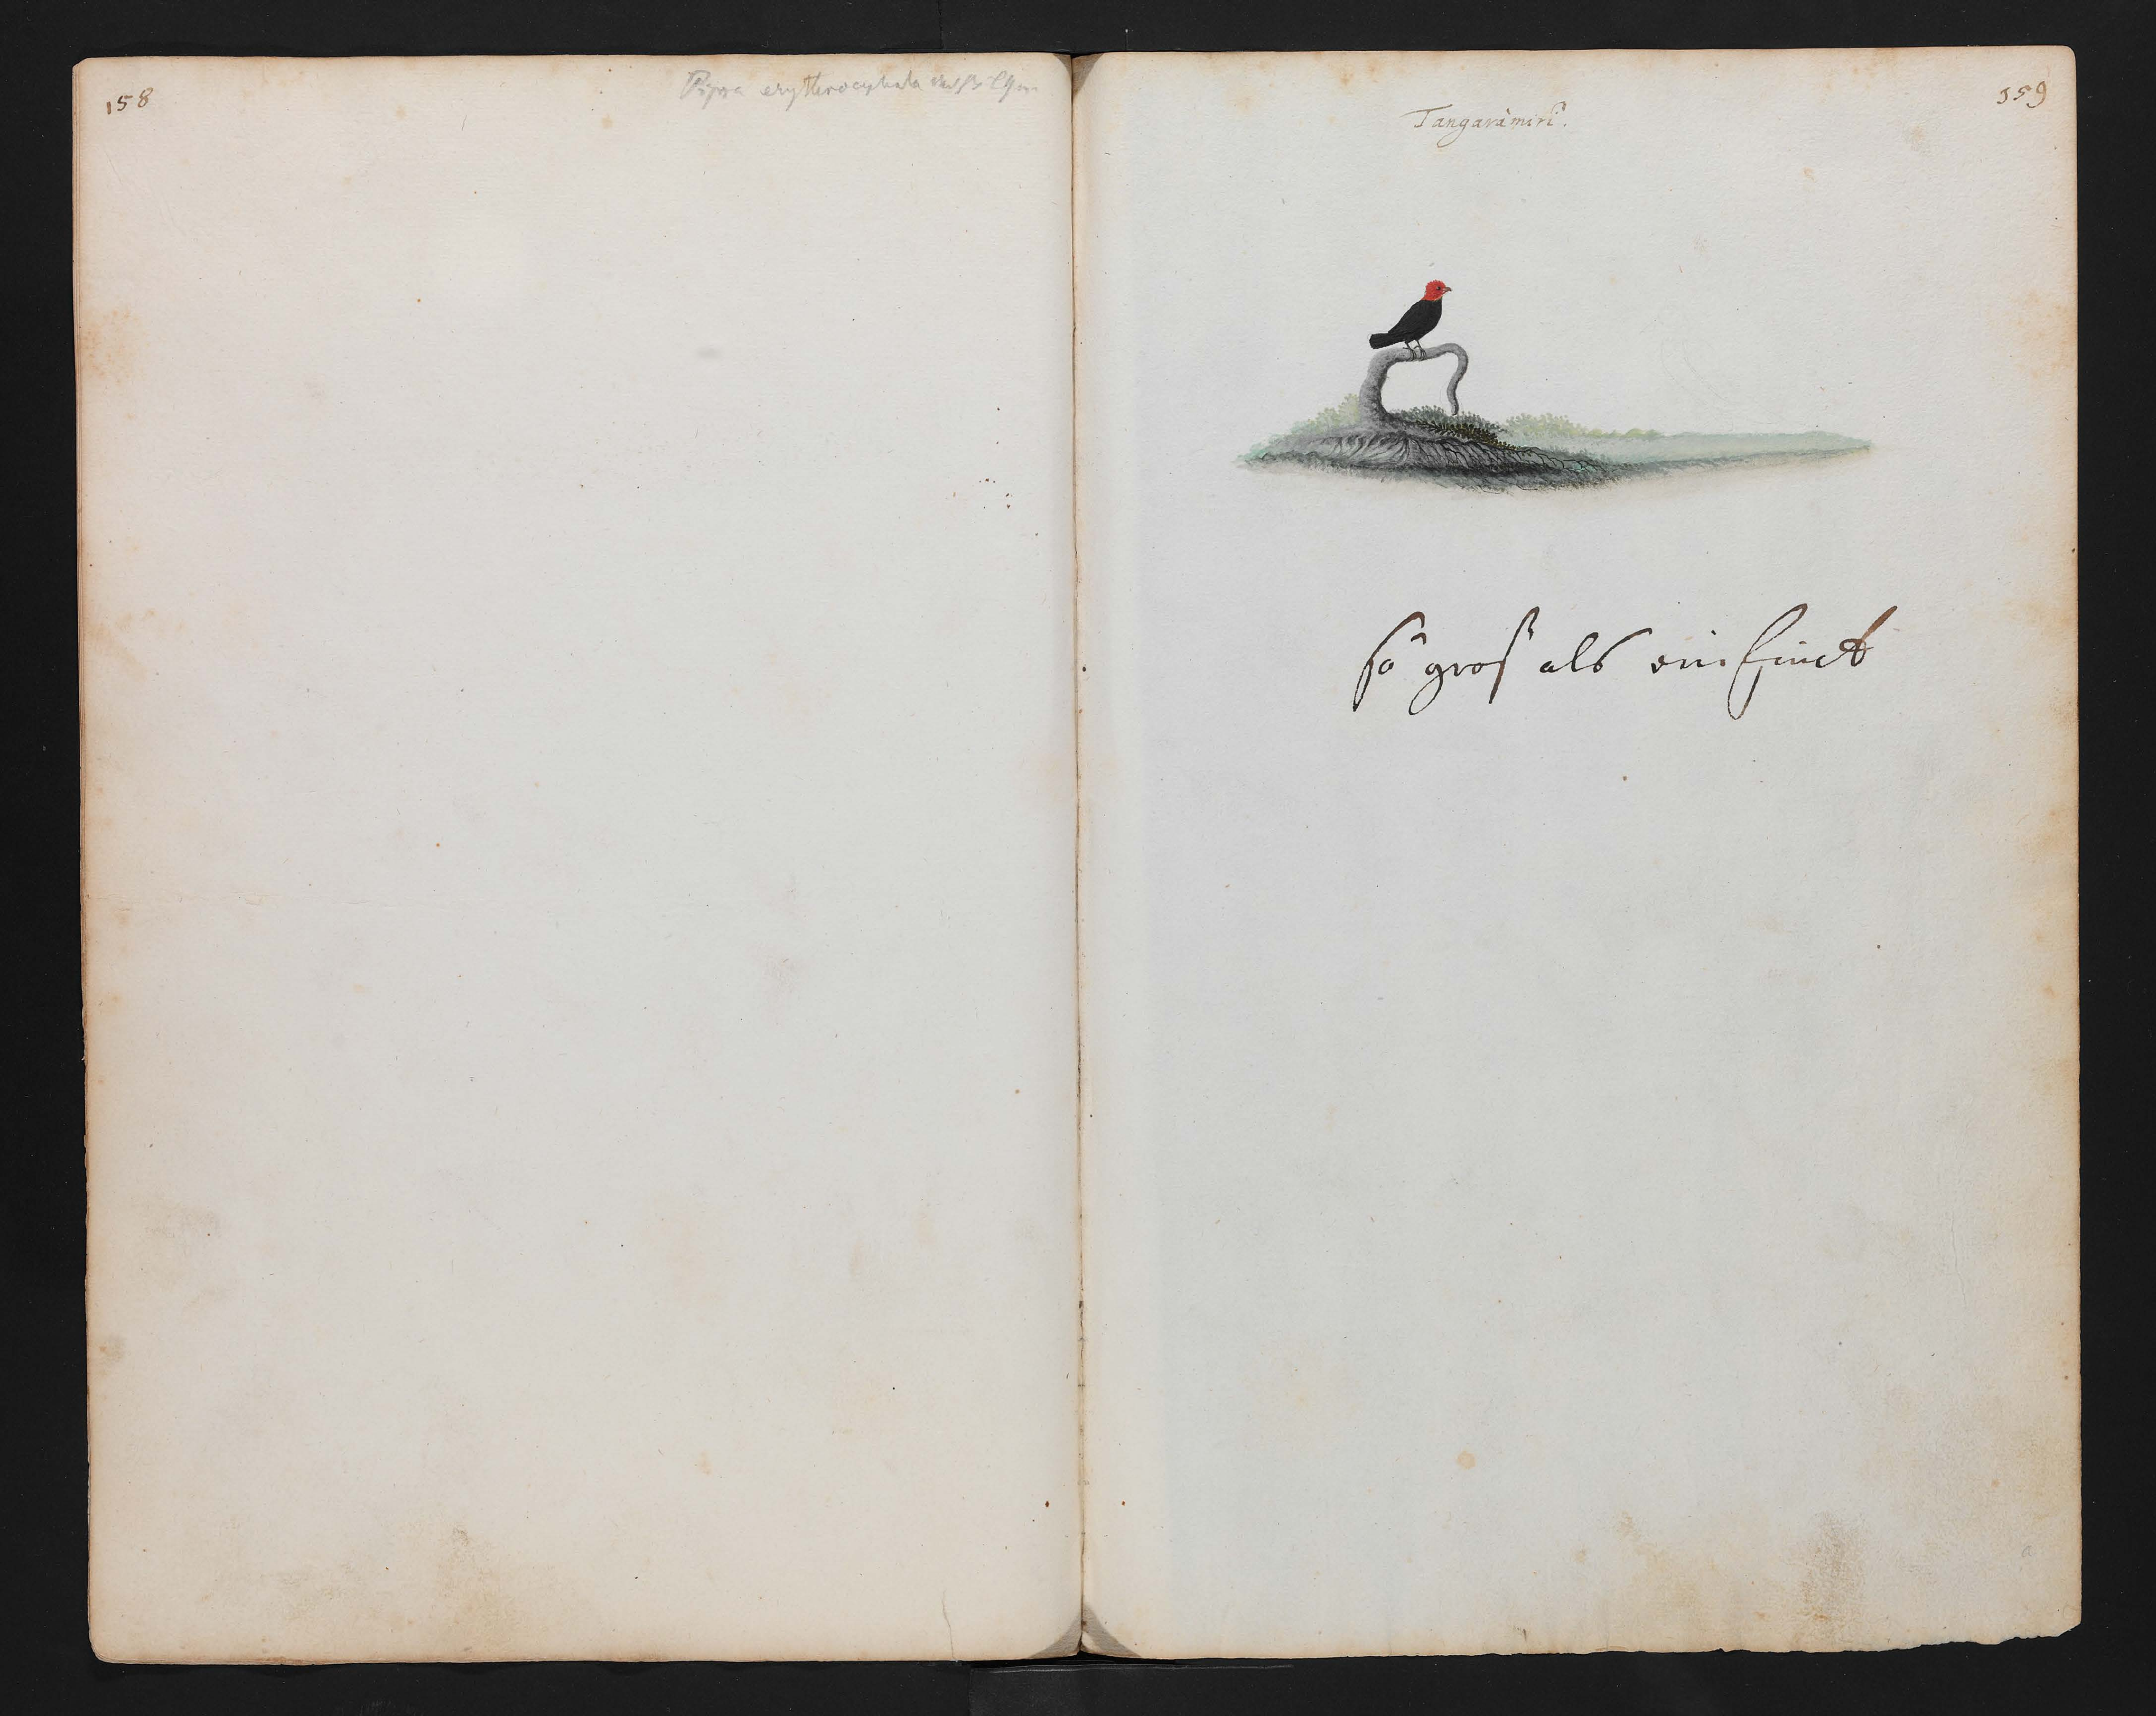 158
Pipra erythrocephala
359
Tangaramiri.
so groß als ein finck